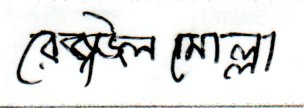 রেজাউল মোল্লা